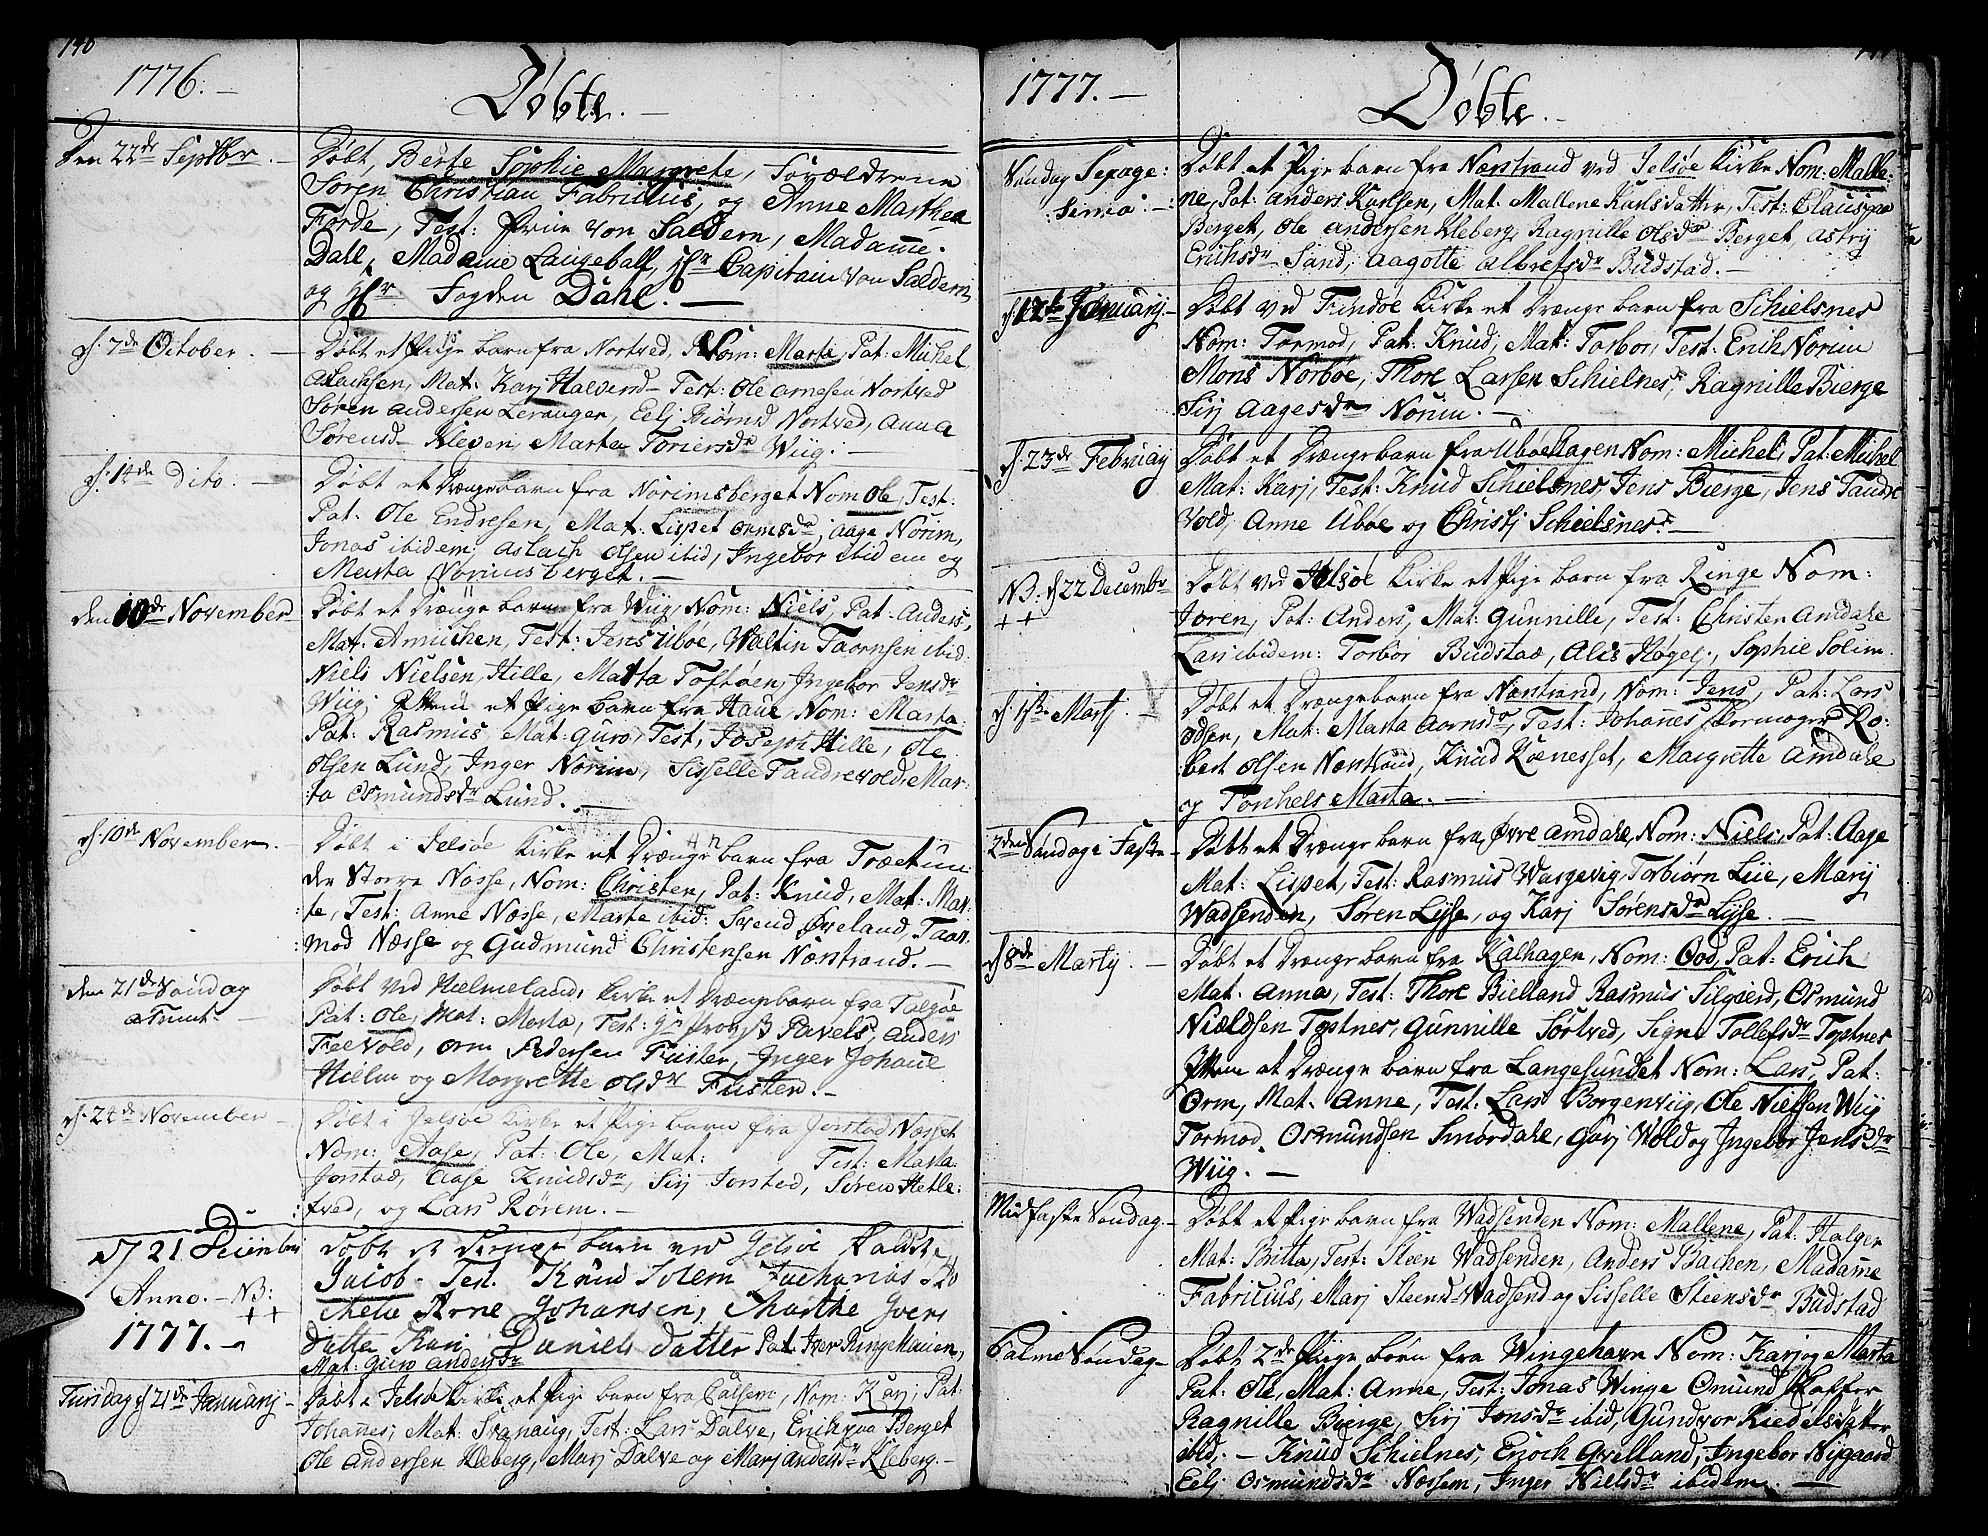 140
1776.
Döbte.
Den 22de Septbr.
Döbt, Berte Sophie Margrete, Forældrene
Sören Christian Fabricius, og Anne Marthea
Forde, Test: Friie von Saldern, Madame
Dall, Madame Langeball, Hr Capitain von Saldern,
og Hr Fogden Dahl.
d. 7de October.
Döbt et Pige barn fra Nortved, Nom: Marta, Pat: Michel
Aslachsen, Mat: Karj Halversd Test: Ole Arnesen Nortved
Sören Andersen Leranger, Eelj Biörnsd Nortved, Anna
Sörensd Kleven, Marta Toriersdr Wiig.
d. 14de Dito.
Döbt et Drængebarn fra Norimsberget Nom Ole, Test:
Pat: Ole Endresen, Mat: Lispet Ormsdr, Aage Norim,
Jonas ibidem, Aslach Olsen ibid, Ingebor ibidem og
Marta Norimsberget.
den 10de November
Döbt et Drænge barn fra Wiig, Nom: Niels, Pat: Anders,
Mat: Annichen, Test: Jens Uböe, Waltin Taornsen ibid.
Niels Nielsen Hille, Marta Toftöen, Ingebor Jensdr
Wiig; Item et Pige barn fra Haue, Nom: Marta
Pat: Rasmus Mat: Guro, Test, Joseph Hille, Ole
Olsen Lund, Inger Norim, Sisselle Tandrevold, Mar-
ta Osmundsdr Lund.
d. 10de November.
Döbt i Jelsöe Kirke et Drænge barn fra Træet un-
der Storre Næsse, Nom: Christen, Pat: Knud, Mat: Mar-
te, Test: Anne Næsse, Marte ibid: Svend Övreland, Taar-
mod Næsse og Gudmund Christensen Nærstrand.
den 21de Söndag
a Trinit.
Döbt ved Hielmelands Kirke et Drængebarn fra Talgöe
Pat: Ole, Mat: Marta, Test: Hr Provst Pavels, Anders
Feevold, Orm Pedersen Fuister, Inger Johane
Hielm og Margrette Olsdr Fuister.
d. 24de November
Döbt i Jelsöe Kirke et Pige barn fra Jonstad Næsset
Nom: Aase, Pat: Ole, Mat: Test: Marta
Jonstad, Aase Knudsdr, Sirj Jonstad, Sören Hetle-
tved, og Lars Rörem.
d 21 Decembr
Anno. NB:
++
1777.
Döbt et Drenge barn ved Gelsöe Kaldte
Jacob Test. Knud Solem Zacharias
Arne Johansen, Marthe Ivers
datter Kari Daniels datter Pat Iver Ringe Muien,
Mat: Guro Andersdr
Tirsdag d 21de Januarij
Döbt i Jelsöe Kirke et Pige barn fra Calsem, Nom: Karj, Pat:
Johannes, Mat: Svanaug, Test: Lars Dalve, Erik paa Berget
Ole Andersen Kleberg, Marj Dalve og Marj Andersdr Kleberg.
1777.
Döbte.
Söndag Sexage:
sima.
Döbt et Pige barn fra Nærstrand ved Jelsöe Kirke Nom: Malle-
ne, Pat: Anders Karlsen, Mat: Mallene Karlsdatter, Test: Claus paa
Berget, Ole Andersen Kleberg, Ragnille Olsdr Berget, Astrij
Erichsdr Sand, Aagotte Albretsdr Budstad.
d. 12te Januarij
Döbt ved Findöe Kirke et Drænge barn fra Schielsnes
Nom: Tormod, Pat: Knud, Mat: Torbor, Test: Erik Norim
Mons Norböe, Thore Larsen Schielnes, Ragnille Bierge
Sirj Aagesdr Norim.
d. 23de Februarij
Döbt et Drængebarn fra Uböehagen Nom: Michel, Pat: Michel
Mat: Karj, Test: Knud Schielsnes, Jens Bierge, Jens Tandre
vold, Anne Uböe og Christj Schielsnes.
NB. d 22 Decembr
++
Döbt ved Jelsöe Kirke et Pige barn fra Ringe Nom:
Joren, Pat: Anders, Mat: Gunnille, Test: Christen Amdahl
Lars ibidem: Torbor Budstad, Alis Högelj, Sophie Solim.
Martj.
Döbt et Drængebarn fra Nærstrand, Nom: Jens, Pat: Lars
Odsen, Mat: Marta Aornsdr, Test: Johannes Hermoger Ro-
bert Olsen Nærstrand, Knud Rænesset, Margrette Amdahl
og Torchels Marta.
2den Söndag i Faste
Döbt et Drænge barn fra Övre Amdahl, Nom: Niels, Pat: Aage
Mat: Lispet, Test: Rasmus Wargevig, Torbiörn Leie, Marij
Wadsenden, Sören Lysse, og Karj Sörensdr Lysse.
d. 8de Martij.
Döbt et Drængebarn fra Kalhagen, Nom: Ood, Pat: Erich
Mat: Anna, Test: Thore Bielland Rasmus Silgierd, Osmund
Niældsen Toptnes, Gunnille Sörtved, Signe Tollefsdr Toptnes
Item et Drænge barn fra Langesundet Nom: Lars, Pat:
Orm, Mat: Anne, Test: Lars Borgenviig, Ole Nielsen Wiig
Tormod Osmundsen Smördahl, Gurj Wold og Ingebor Jensdr
Wiig.
Midfaste Söndag.
Döbt et Pige barn fra Wadsenden Nom: Mallene, Pat: Holger
Mat: Britta, Test: Steen Wadsenden, Anders Bachen, Madame
Fabricius, Marj Steensd Wadsend og Sisselle Steensdr Budstad
Palme Söndag
Döbt 2de Pige börn fra Wingehavn Nom: Karj og Marta
Pat: Ole, Mat: Anne, Test: Jonas Winge Omund Hoffer
Ragnille Bierge, Sirj Jonsdr ibid, Gundvor Riedelsdatter
ibid, Knud Schielnes, Enoch Qvelland, Ingebor Nigaard
Eelj Osmundsdr Næssem, Inger Nielsdr ibidem.